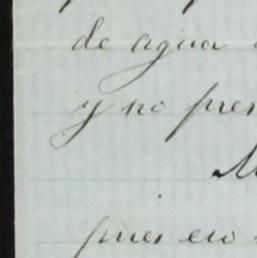 de agua
y no pres
M
pues eso